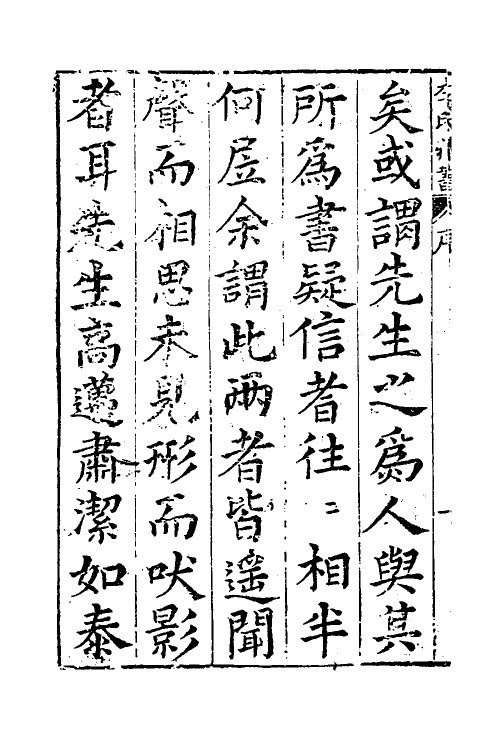 矣或謂先生之爲人與其
所爲書疑信者往〻相半
何居余謂此兩者皆遙聞
聲而相思未見形而吠影
者耳先生高邁肅潔如泰